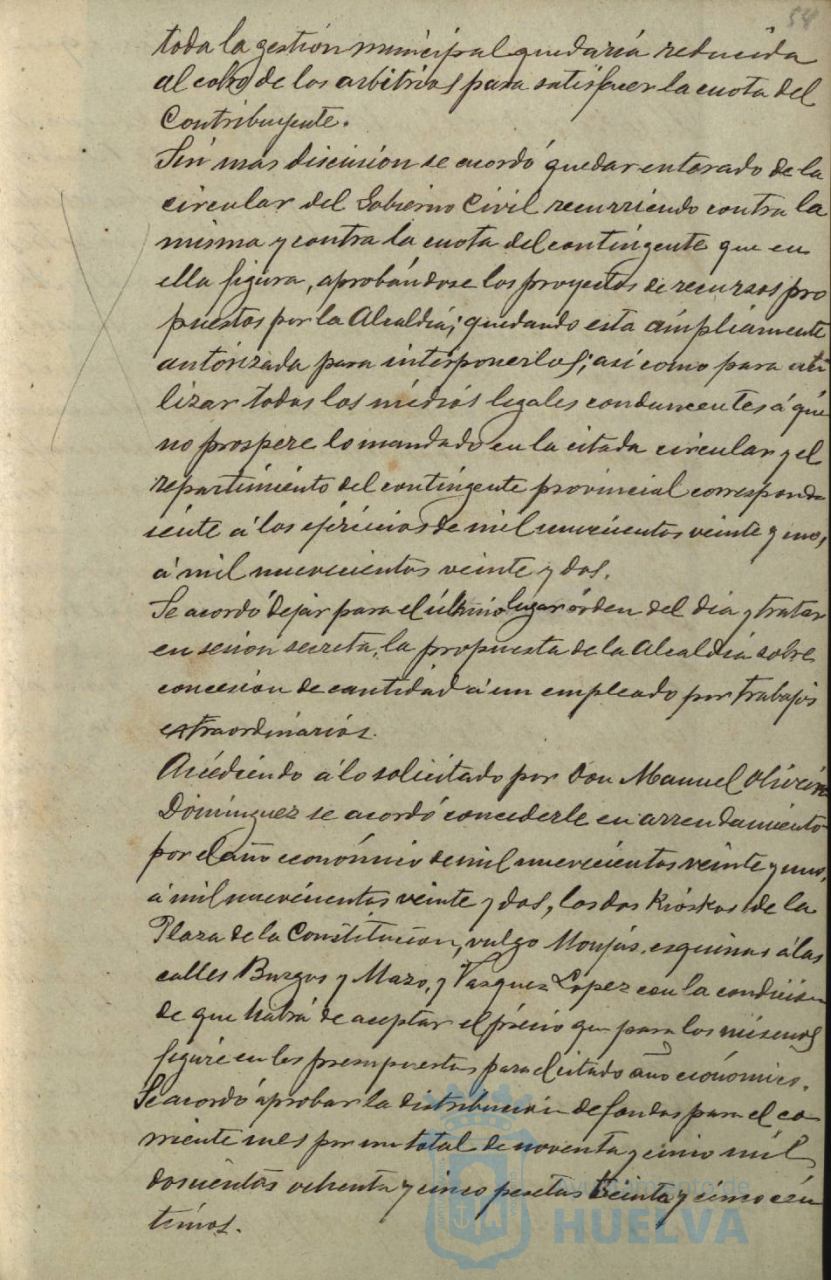 54
toda la gestión municipal quedaria reducida
al cobro de los arbitrios para satisfacer la cuota del
Contribuyente.
Sin mas discusion se acordó quedar enterado de la
circular del Gobierno Civil recurriendo contra la
misma y contra la cuota del contingente que en
ella figura, aprobándose los proyectos de recursos pro
puestos por la Alcaldia; quedando esta ampliamente
autorizada para interponerlos; asi como para uti
lizar todos los medios legales conducentes á que
no prospere lo mandado en la citada circular y el
repartimiento del contingente provincial correspondi
iente á los ejercicios de mil novecientos veinte y uno,
á mil novecientos veinte y dos.
Se acordó dejar para el último lugar órden del dia y tratar
en sesion secreta, la propuesta de la Alcaldia sobre
concesion de cantidad á un empleado por trabajos
extraordinarios.
Accediendo á lo solicitado por Don Manuel Oliveira
Dominguez se acordó concederle en arrendamiento
por el año económico de mil novecientos veinte y uno,
á mil novecientos veinte y dos, los dos Kióskos de la
Plaza de la Constitucion, vulgo Monjas, esquinas á las
calles Burgos y Mazo, y Vasquez Lopez con la condicion
de que habrá de aceptar el précio que para los mismos
figure en los presupuestos para el citado año económico.
Se acordó aprobar la distribucion de fondos para el co
rriente mes por un total de noventa y cinco mil
doscientas ochenta y cinco pesetas treinta y cinco cén
timos.
Ayuntamiento de
HUELVA